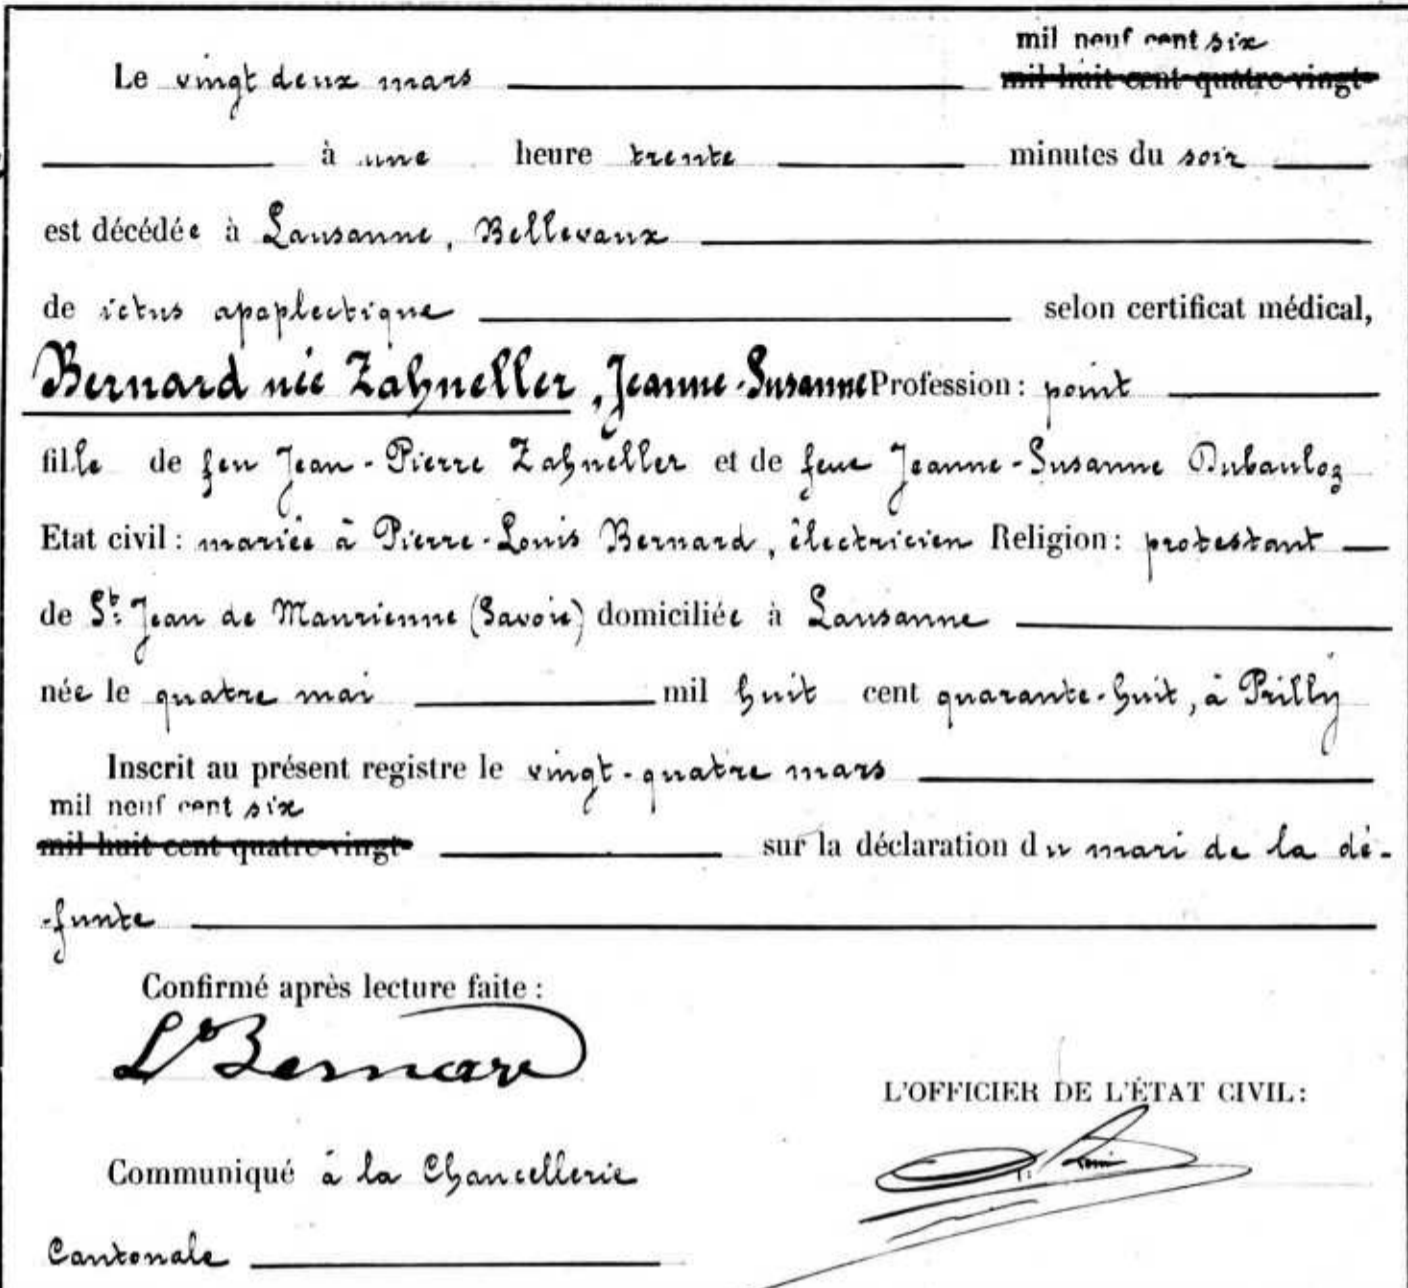 mil neuf cent six
Le vingt deux mars mil huit cent quatre-vingt
à une heure trente minutes du soir
est décédée à Lausanne, Bellevaux
de ictus apoplectique selon certificat médical,
Bernard née Zahneller, Jeanne-Susanne Profession : point
fille de feu Jean-Pierre Zahneller et de feue Jeanne-Susanne Dubauloz
Etat civil : mariée à Pierre-Louis Bernard, électricien Religion : protestant
de St Jean de Maurienne (Savoie) domiciliée à Lausanne
née le quatre mai mil huit cent quarante-huit, à Prilly
Inscrit au présent registre le vingt-quatre mars
mil neuf cent six
mil huit cent quatre-vingt sur la déclaration du mari de la dé-
-funte
Confirmé après lecture faite :
Ls Bernard
L'OFFICIER DE L'ÉTAT CIVIL :
Communiqué à la Chancellerie
Cantonale